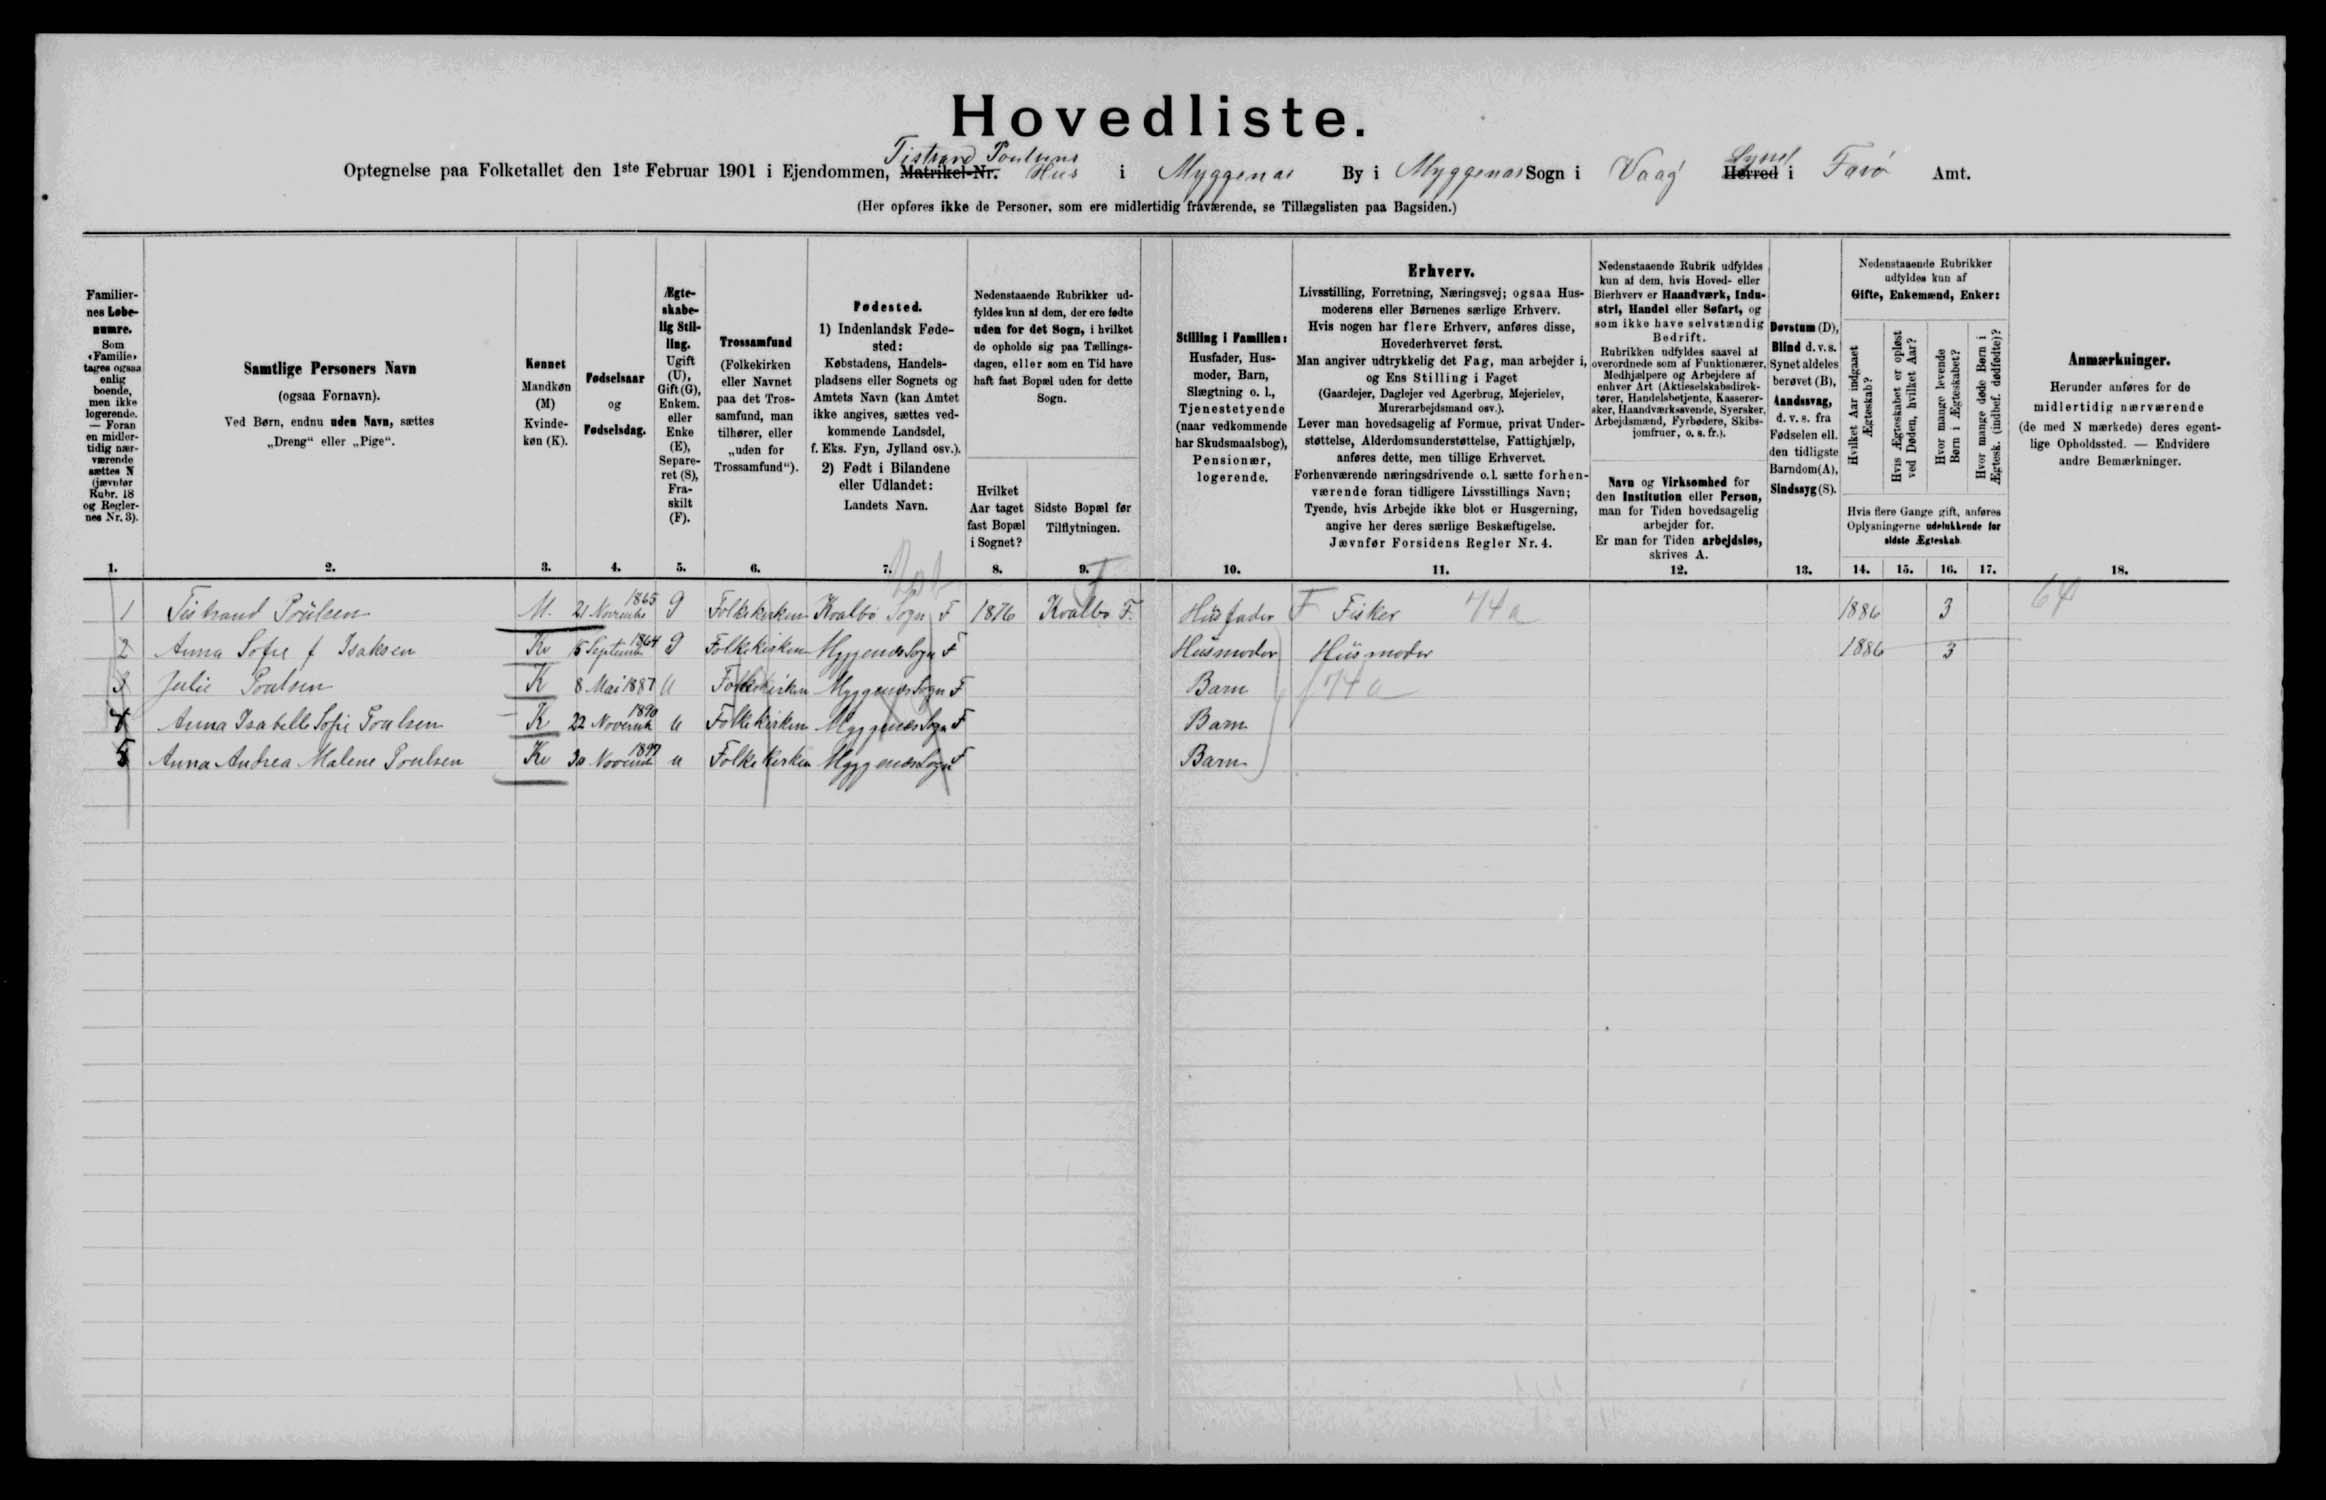 Hovedliste.
Tistrand Poulsens
Optegnelse paa Folketallet den 1ste Februar 1901 i Ejendommen, Matrikel-Nr. Hus i Myggenæs By i Myggenæs Sogn i Vaag Syssel Herred i Færø Amt.
(Her opføres ikke de Personer, som ere midlertidig fraværende, se Tillægslisten paa Bagsiden.)
Familier-
nes Løbe-
numre.
Som
«Familie»
tages ogsaa
enlig
boende,
men ikke
logerende.
— Foran
en midler-
tidig nær-
værende
sættes N
(jævnfør
Rubr. 18
og Regler-
nes Nr. 3).
1.
Samtlige Personers Navn
(ogsaa Fornavn).
Ved Børn, endnu uden Navn, sættes
„Dreng“ eller „Pige“.
2.
Kønnet
Mandkøn
(M)
Kvinde-
køn (K).
3.
Fødselsaar
og
Fødselsdag.
4.
Ægte-
skabe-
lig Stil-
ling.
Ugift
(U),
Gift (G),
Enkem.
eller
Enke
(E),
Separe-
ret (S),
Fra-
skilt
(F).
5.
Trossamfund
(Folkekirken
eller Navnet
paa det Tros-
samfund, man
tilhører, eller
„uden for
Trossamfund“).
6.
Fødested.
1) Indenlandsk Føde-
sted:
Købstadens, Handels-
pladsens eller Sognets og
Amtets Navn (kan Amtet
ikke angives, sættes ved-
kommende Landsdel,
f. Eks. Fyn, Jylland osv.).
2) Født i Bilandene
eller Udlandet:
Landets Navn.
7.
Nedenstaaende Rubrikker ud-
fyldes kun af dem, der ere fødte
uden for det Sogn, i hvilket
de opholde sig paa Tællings-
dagen, eller som en Tid have
haft fast Bopæl uden for dette
Sogn.
Hvilket
Aar taget
fast Bopæl
i Sognet?
8.
Sidste Bopæl før
Tilflytningen.
9.
Stilling i Familien:
Husfader, Hus-
moder, Barn,
Slægtning o. l.,
Tjenestetyende
(naar vedkommende
har Skudsmaalsbog),
Pensionær,
logerende.
10.
Erhverv.
Livsstilling, Forretning, Næringsvej; ogsaa Hus-
moderens eller Børnenes særlige Erhverv.
Hvis nogen har flere Erhverv, anføres disse,
Hovederhvervet først.
Man angiver udtrykkelig det Fag, man arbejder i,
og Ens Stilling i Faget
(Gaardejer, Daglejer ved Agerbrug, Mejerielev,
Murerarbejdsmand osv.).
Lever man hovedsagelig af Formue, privat Under-
støttelse, Alderdomsunderstøttelse, Fattighjælp,
anføres dette, men tillige Erhvervet.
Forhenværende næringsdrivende o. l. sætte forhen-
værende foran tidligere Livsstillings Navn;
Tyende, hvis Arbejde ikke blot er Husgerning,
angive her deres særlige Beskæftigelse.
Jævnfør Forsidens Regler Nr. 4.
11.
Nedenstaaende Rubrik udfyldes
kun af dem, hvis Hoved- eller
Bierhverv er Haandværk, Indu-
stri, Handel eller Søfart, og
som ikke have selvstændig
Bedrift.
Rubrikken udfyldes saavel af
overordnede som af Funktionærer,
Medhjælpere og Arbejdere af
enhver Art (Aktieselskabsdirek-
tører, Handelsbetjente, Kasserer-
sker, Haandværkssvende, Syersker,
Arbejdsmænd, Fyrbødere, Skibs-
jomfruer, o. s. fr.).
Navn og Virksomhed for
den Institution eller Person,
man for Tiden hovedsagelig
arbejder for.
Er man for Tiden arbejdsløs,
skrives A.
12.
Døvstum (D),
Blind d. v. s.
Synet aldeles
berøvet (B),
Aandssvag,
d. v. s. fra
Fødselen ell.
den tidligste
Barndom (A),
Sindssyg (S).
13.
Nedenstaaende Rubrikker
udfyldes kun af
Gifte, Enkemænd, Enker:
Hvilket Aar indgaaet
Ægteskab?
Hvis Ægteskabet er opløst
ved Døden, hvilket Aar?
Hvor mange levende
Børn i Ægteskabet?
Hvor mange døde Børn i
Ægtesk. (indbef. dødfødte)?
Hvis flere Gange gift, anføres
Oplysningerne udelukkende for
sidste Ægteskab.
14. 15. 16. 17.
Anmærkninger.
Herunder anføres for de
midlertidig nærværende
(de med N mærkede) deres egent-
lige Opholdssted. — Endvidere
andre Bemærkninger.
18.
1 Tistrand Poulsen M. 21 November 1865 G Folkekirken Kvalbø Sogn F 1876 Kvalbø F. Husfader F Fisker 74a 1886 3 64
2 Anna Sofie f Isaksen Kv 15 September 1864 G Folkekirken Myggenæs Sogn F Husmoder Husmoder 1886 3
3 Julie Poulsen K 8 Mai 1887 U Folkekirken Myggenæs Sogn F Barn 74a
4 Anna Isabelle Sofie Poulsen K 22 November 1890 u Folkekirken Myggenæs Sogn F Barn
5 Anna Andrea Malene Poulsen Kv 30 November 1897 u Folkekirken Myggenæs Sogn F Barn